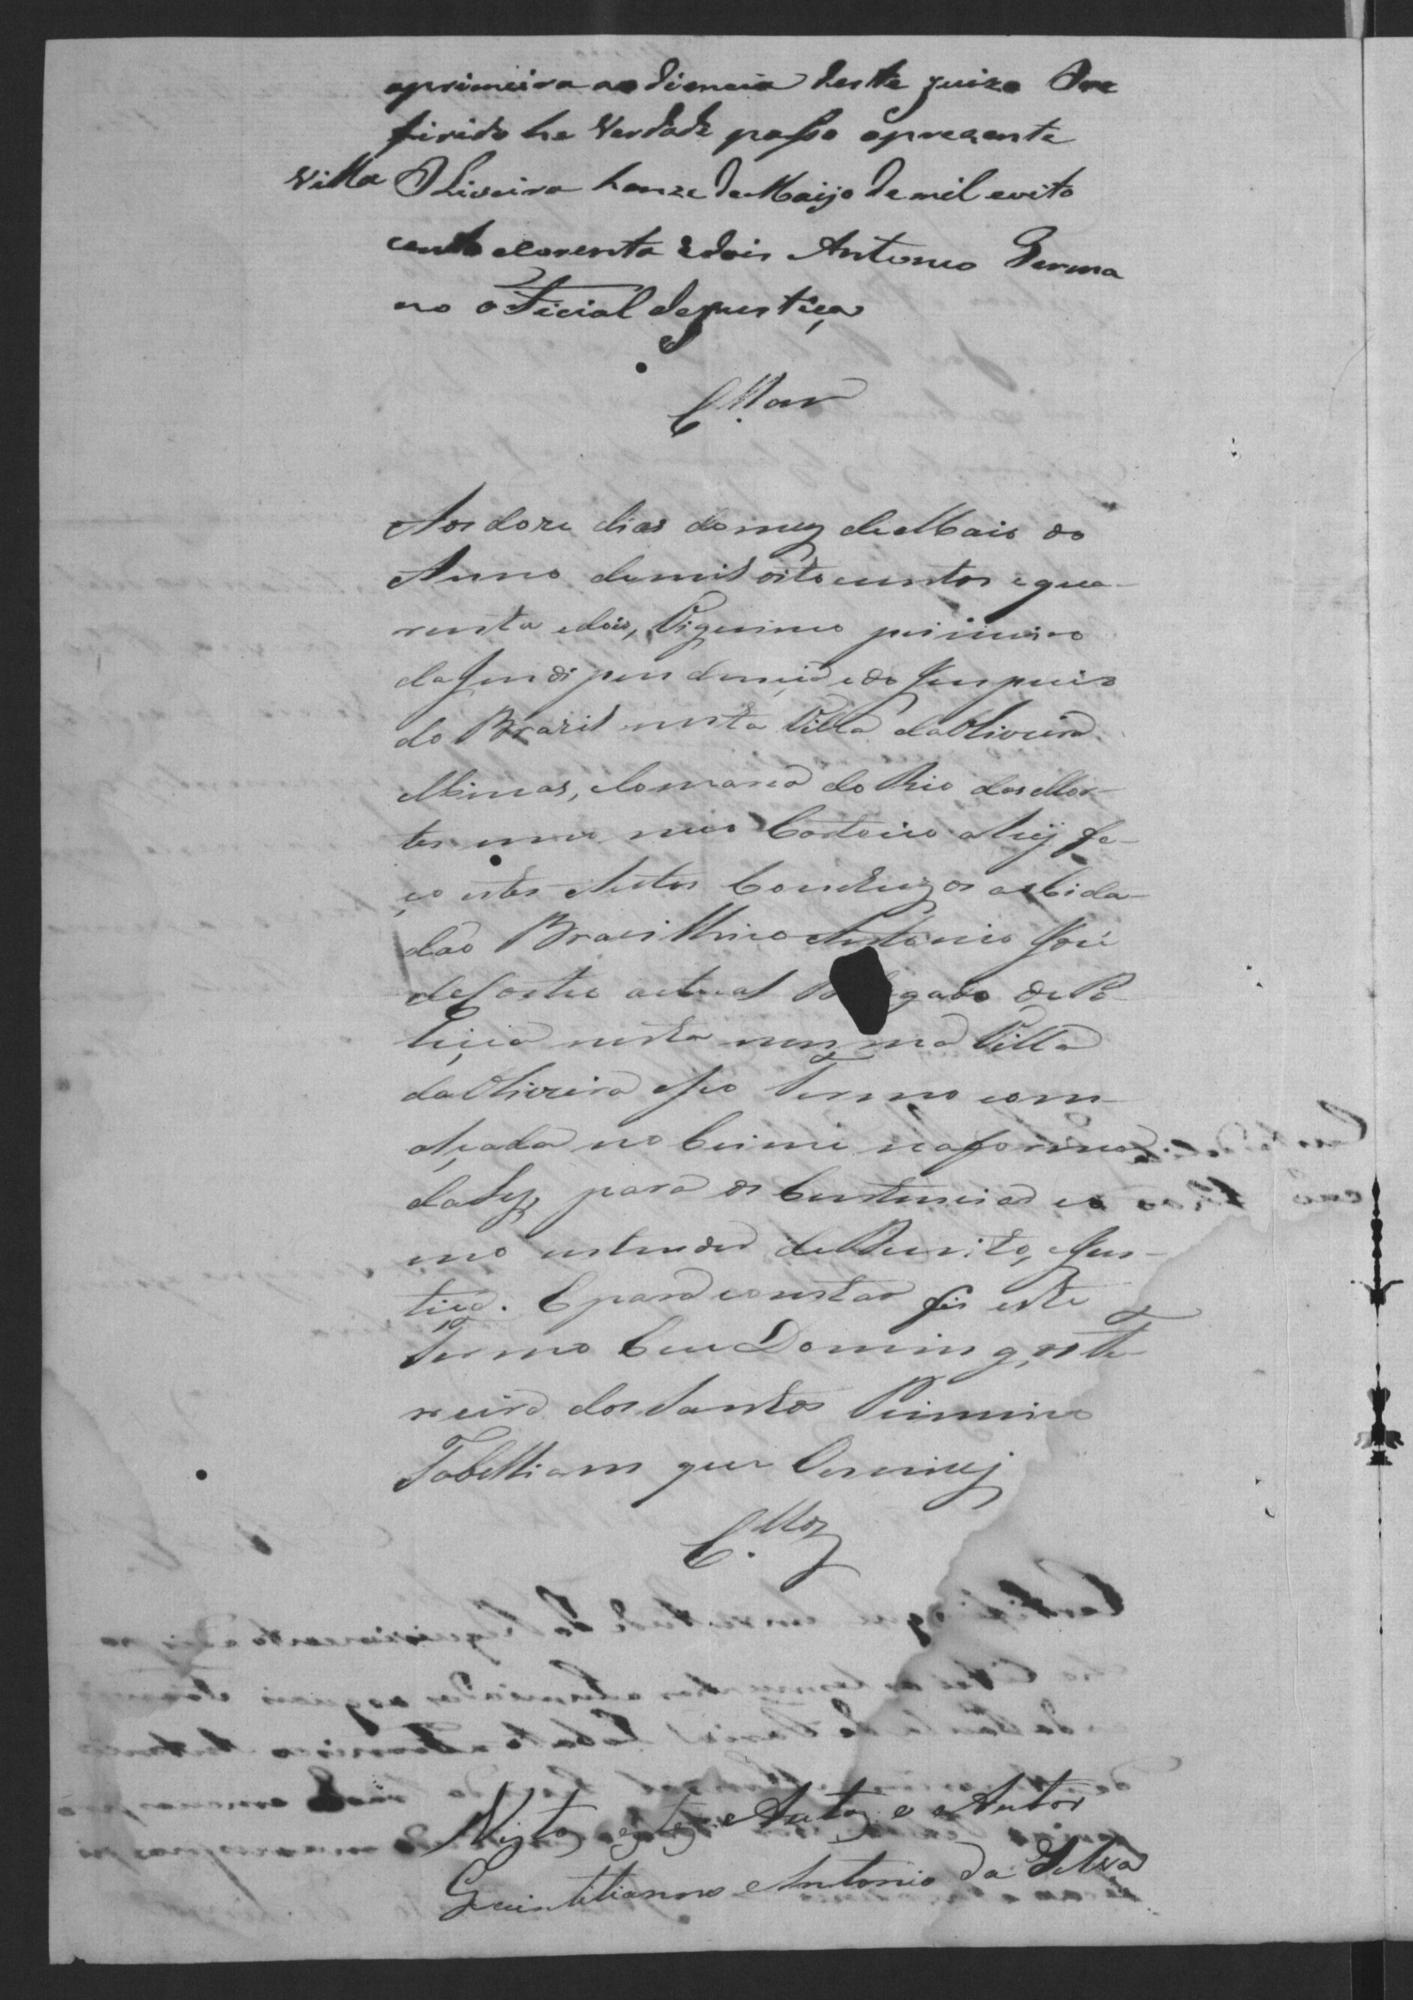 aprimeira aodiencia deste juizo Ore
firido he verdade paso aprezente
Villa Oliveira honze de Maijo de mil eoito
cento ecorenta edois Antonio Germa
no oficial dejustiça
C.llam
Aos doze dias do mez de Maio do
Anno demil oito centos e qua-
renta edois, Vigesimo primeiro
da Jendipendencia edo Jmperio
do Brazil nesta Villa da Oliveira
Minas, Comarca do Rio das Mor-
tes em meo Cartorio alhy fa-
ço estes Autos Concluzos ao Cida-
dão Brasilleiro Antonio José
de Castro actual Delegado de Po-
liçia nesta mesma Villa
da Oliveira eseo Termo com
alçada no Crime na forma
da Ley, para os Centenciar co
mo entender de Direito, eJus-
tiça. E para constar fis este
Termo Eeu Domingos Te
xeira dos Santos Primeiro
Tabelliam que Oscrevy
C.llos
Vistos estes Autos e Autor
Quintilianno Antonio da Silva